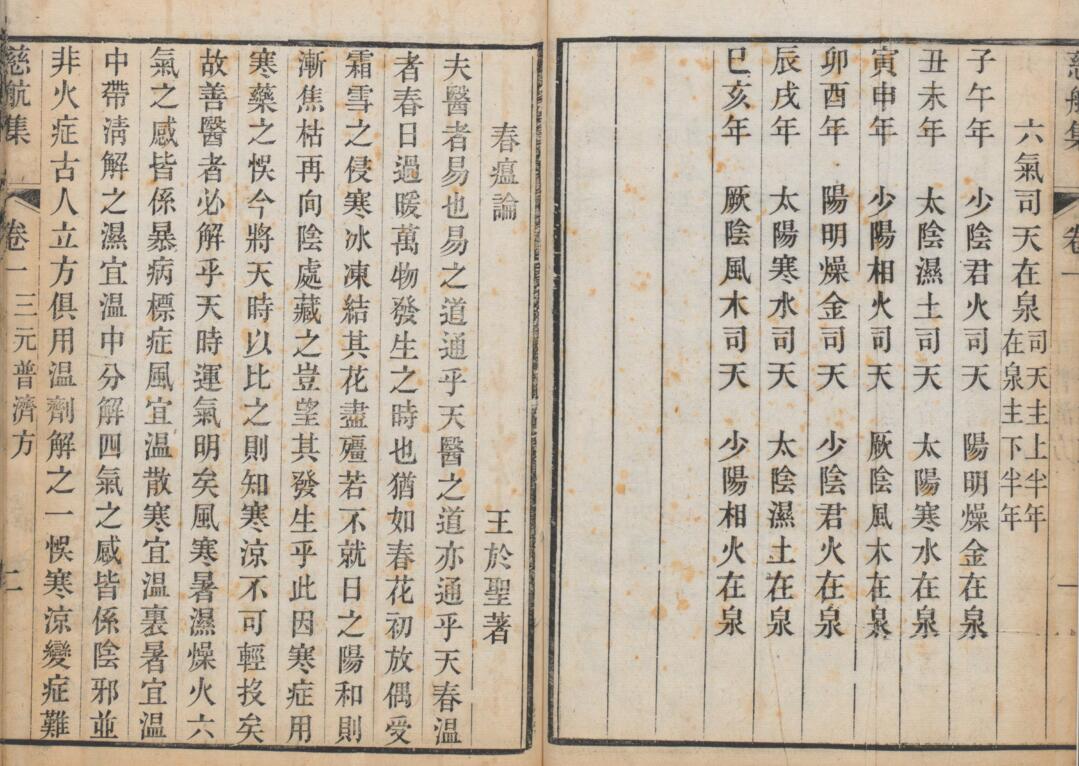 慈航集 卷一 一
六氣司天在泉 司天主上半年 在泉主下半年
子午年 少陰君火司天 陽明燥金在泉
丑未年 太陰濕土司天 太陽寒水在泉
寅申年 少陽相火司天 厥陰風木在泉
卯酉年 陽明燥金司天 少陰君火在泉
辰戌年 太陽寒水司天 太陰濕土在泉
巳亥年 厥陰風木司天 少陽相火在泉
春瘟論 王於聖著
夫醫者易也易之道通乎天醫之道亦通乎天春溫
者春日過暖萬物發生之時也猶如春花初放偶受
霜雪之侵寒冰凍結其花盡殭若不就日之陽和則
漸焦枯再向陰處藏之豈望其發生乎此因寒症用
寒藥之悞今將天時以比之則知寒涼不可輕投矣
故善醫者必解乎天時運氣明矣風寒暑濕燥火六
氣之感皆係暴病標症風宜溫散寒宜溫裏暑宜溫
中帶淸解之濕宜溫中分解四氣之感皆係陰邪並
非火症古人立方俱用溫劑解之一悞寒涼變症難
慈航集 卷一 三元普濟方 二